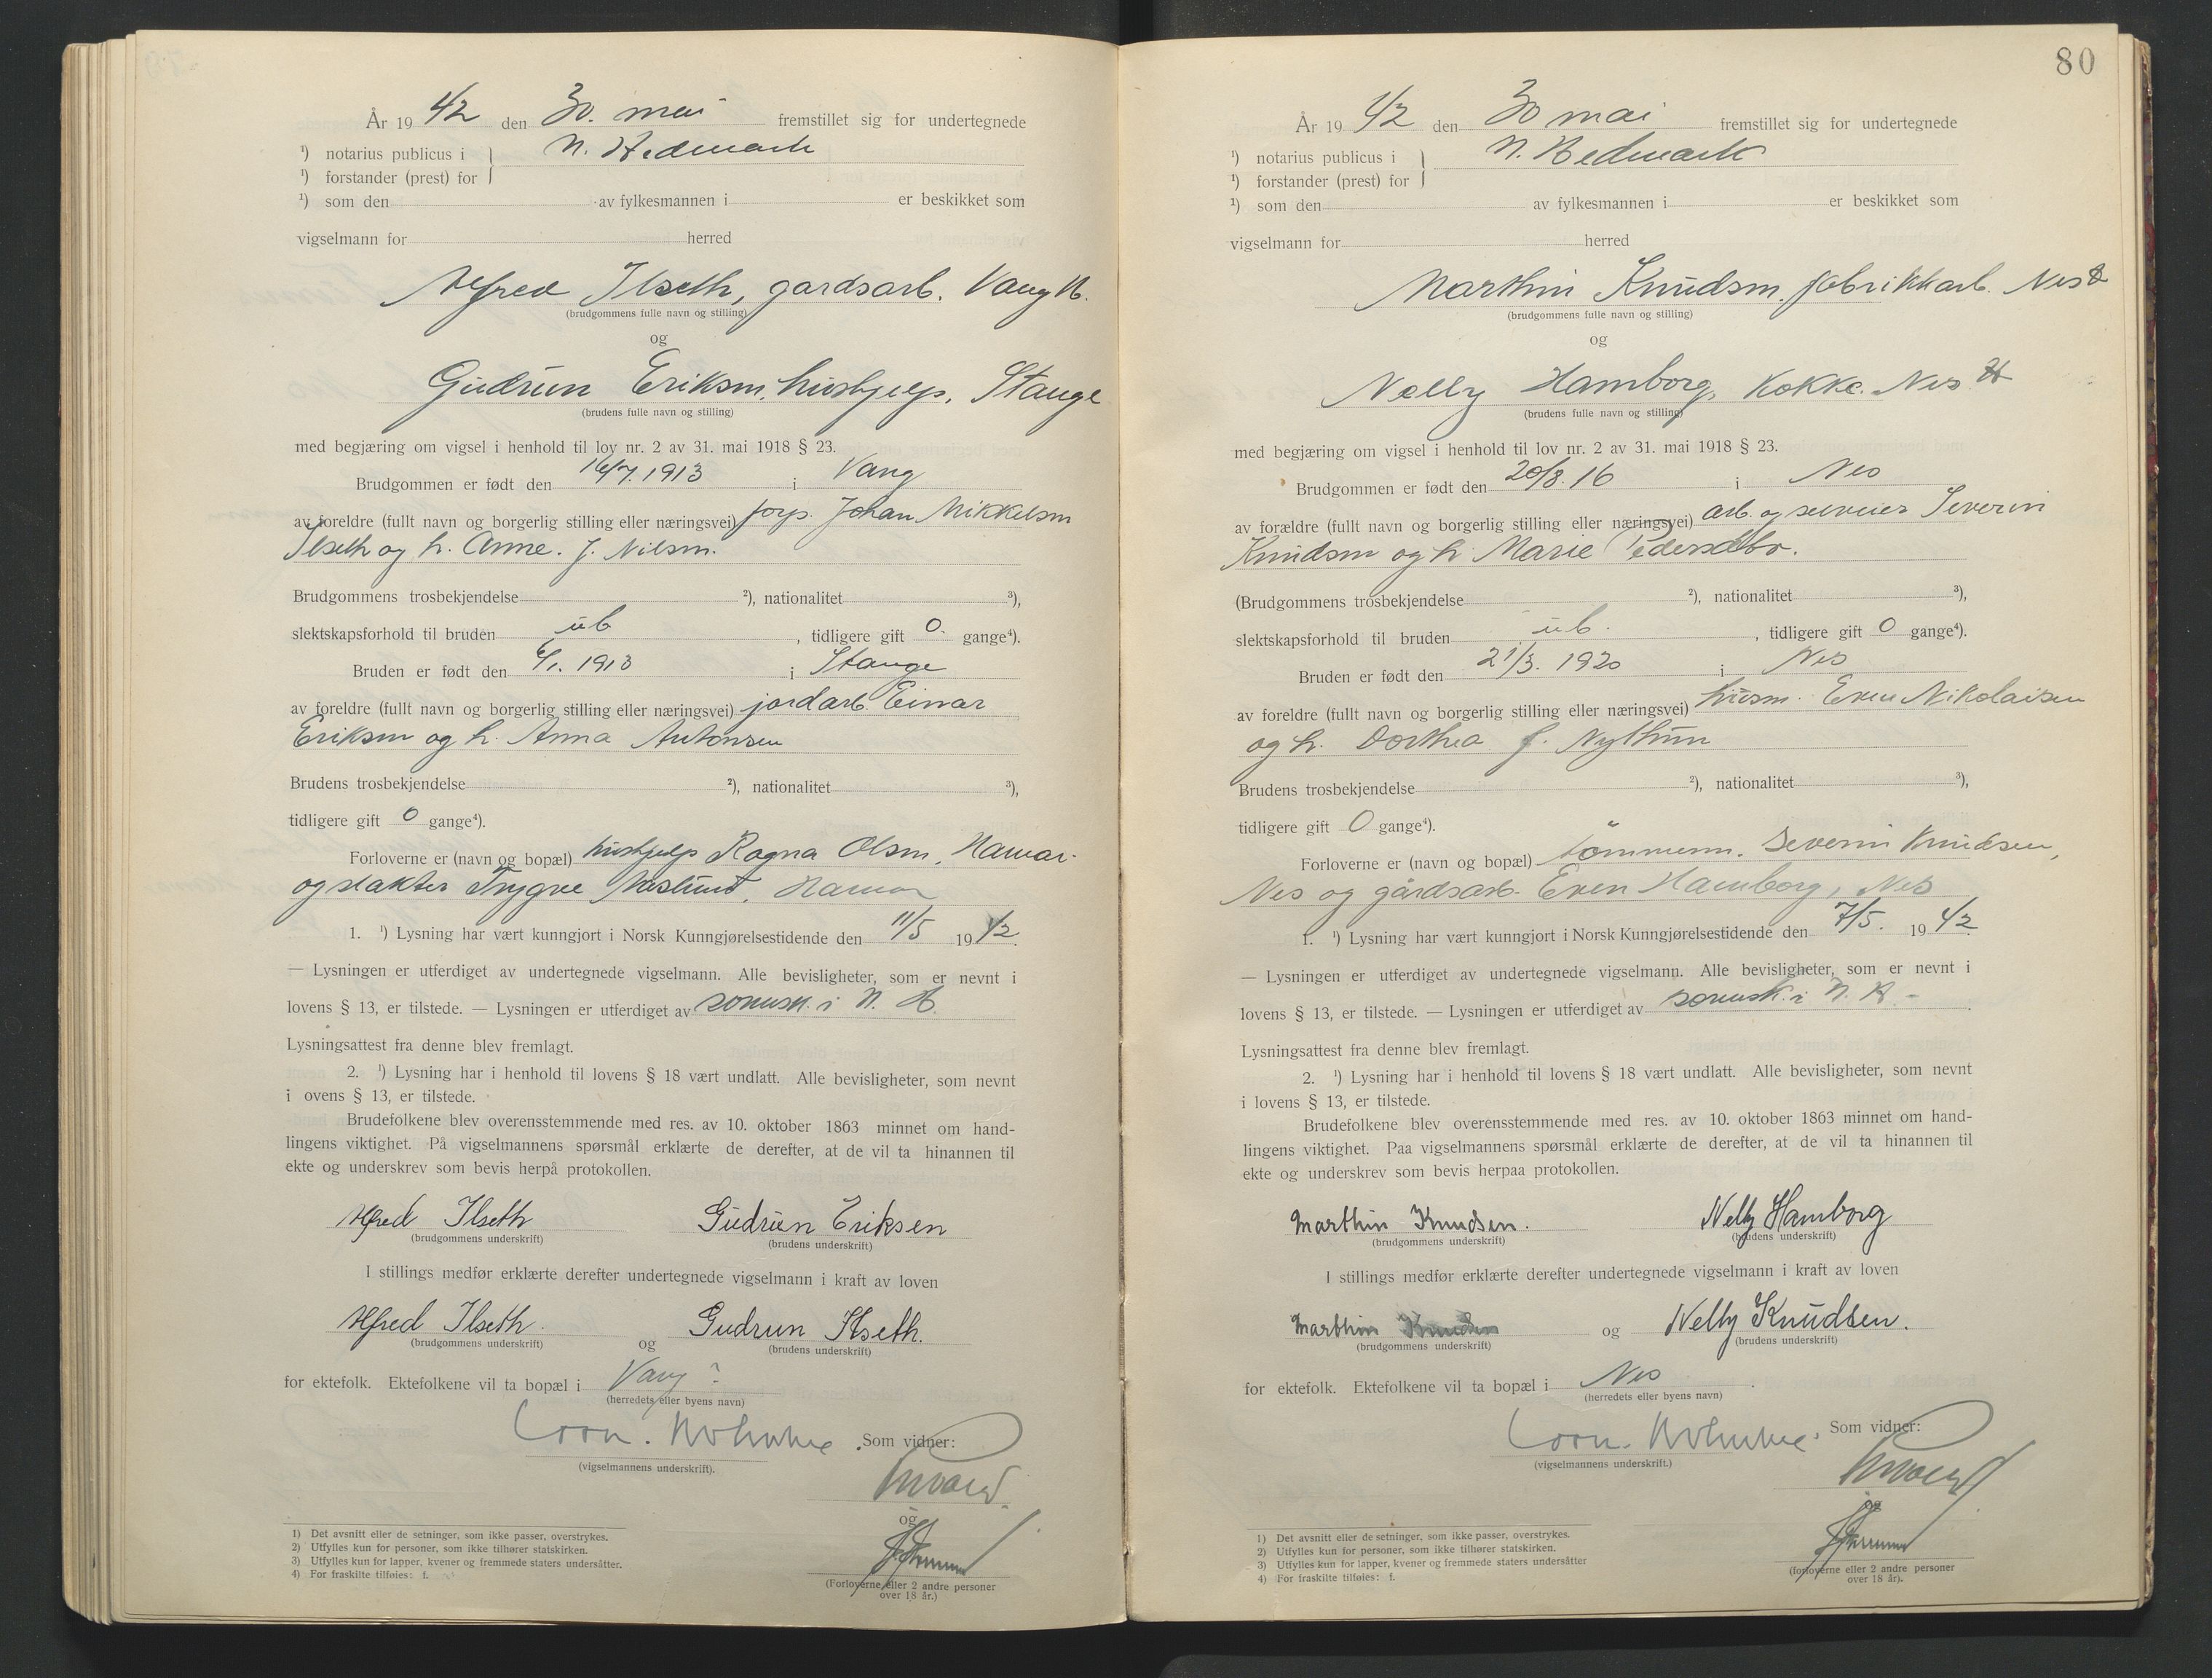 År 19 42 den 30. mai fremstillet sig for undertegnede
¹) notarius publicus i N. Hedmark
¹) forstander (prest) for
¹) som den av fylkesmannen i er beskikket som
vigselmann for herred
Alfred Ilseth, gardsarb. Vang H.
(brudgommens fulle navn og stilling)
og
Gudrun Eriksen, hushjelp, Stange
(brudens fulle navn og stilling)
med begjæring om vigsel i henhold til lov nr. 2 av 31. mai 1918 § 23.
Brudgommen er født den 1913 i Vang
av foreldre (fullt navn og borgerlig stilling eller næringsvei) forp. Johan Mikkelsen
Ilseth og h. Anne. f. Nilsen.
Brudgommens trosbekjendelse ²), nationalitet ³),
slektskapsforhold til bruden ub , tidligere gift 0. gange⁴).
Bruden er født den 6/1. 1913 i Stange
av foreldre (fullt navn og borgerlig stilling eller næringsvei) jordarb. Einar
Eriksen og h. Anna Antonsen
Brudens trosbekjendelse ²), nationalitet ³),
tidligere gift 0 gange⁴).
Forloverne er (navn og bopæl) hushjelp Ragna Olsen, Hamar
og slakter Trygve Hamar
1. ¹) Lysning har vært kunngjort i Norsk Kunngjørelsestidende den 11/5 19 42.
— Lysningen er utferdiget av undertegnede vigselmann. Alle bevisligheter, som er nevnt i
lovens § 13, er tilstede. — Lysningen er utferdiget av sorensk. i N. H.
Lysningsattest fra denne blev fremlagt.
2. ¹) Lysning har i henhold til lovens § 18 vært undlatt. Alle bevisligheter, som nevnt
i ovens § 13, er tilstede.
Brudefolkene blev overensstemmende med res. av 10. oktober 1863 minnet om hand-
lingens viktighet. På vigselmannens spørsmål erklærte de derefter, at de vil ta hinannen til
ekte og underskrev som bevis herpå protokollen.
Alfred Ilseth Gudrun Eriksen
(brudgommens underskrift) (brudens underskrift)
I stillings medfør erklærte derefter undertegnede vigselmann i kraft av loven
Alfred Ilseth. og Gudrun Ilseth.
(brudgommens underskrift) (brudens underskrift)
for ektefolk. Ektefolkene vil ta bopæl i Vang
(herredets eller byens navn)
Som vidner:
(vigselmannens underskrift).
og
(Forloverne eller 2 andre personer
over 18 år.)
1) Det avsnitt eller de setninger, som ikke passer, overstrykes.
2) Utfylles kun for personer, som ikke tilhører statskirken.
3) Utfylles kun for lapper, kvener og fremmede staters undersåtter.
4) For fraskilte tilføies: f.
80
År 19 42 den 30 mai fremstillet sig for undertegnede
¹) notarius publicus i N. Hedmark
¹) forstander (prest) for
¹) som den av fylkesmannen i er beskikket som
vigselmann for herred
Marthin Knudsen, fabrikkarb. Nes H
(brudgommens fulle navn og stilling)
og
Nelly Hamborg, kokke. Nes H
(brudens fulle navn og stilling)
med begjæring om vigsel i henhold til lov nr. 2 av 31. mai 1918 § 23.
Brudgommen er født den 20/8. 16 i Nes
av forældre (fullt navn og borgerlig stilling eller næringsvei) arb. og selveier Severin
Knudsen og h. Marie Pedersdtr.
(Brudgommens trosbekjendelse ²), nationalitet ³),
slektskapsforhold til bruden ub. , tidligere gift 0 gange⁴).
Bruden er født den 21/3. 1920 i Nes
av foreldre (fullt navn og borgerlig stilling eller næringsvei) husm. Even Nikolaisen
og h. Dorthea f. Nythun
Brudens trosbekjendelse ²), nationalitet ³),
tidligere gift 0 gange⁴).
Forloverne er (navn og bopæl) tømmerm. Severin Knudsen,
Nes og gårdsarb. Even Hamborg, Nes
1. ¹) Lysning har vært kunngjort i Norsk Kunngjørelsestidende den 7/5. 19 42
— Lysningen er utferdiget av undertegnede vigselmann. Alle bevisligheter, som er nevnt i
lovens § 13, er tilstede. — Lysningen er utferdiget av sorensk. i N. H.
Lysningsattest fra denne blev fremlagt.
2. ¹) Lysning har i henhold til lovens § 18 vært undlatt. Alle bevisligheter, som nevnt
i lovens § 13, er tilstede.
Brudefolkene blev overensstemmende med res. av 10. oktober 1863 minnet om hand-
lingens viktighet. Paa vigselmannens spørsmål erklærte de derefter, at de vil ta hinannen til
ekte og underskrev som bevis herpaa protokollen.
Marthin Knudsen. Nelly Hamborg
(brudgommens underskrift) (brudens underskrift)
I stillings medfør erklærte derefter undertegnede vigselmann i kraft av loven
Marthin Knudsen og Nelly Knudsen.
(brudgommens underskrift) (brudens underskrift)
for ektefolk. Ektefolkene vil ta bopæl i Nes
(herredets eller byens navn)
Som vidner:
(vigselmannens underskrift.)
og
(forloverne eller 2 andre personer
over 18 år).
1) Det avsnitt eller de setninger, som ikke passer, overstrykes.
2) Utfylles kun for personer, som ikke tilhører statskirken.
3) Utfylles kun for lapper, kvener og fremmede staters undersåtter
4) For fraskilte tilføies: f.